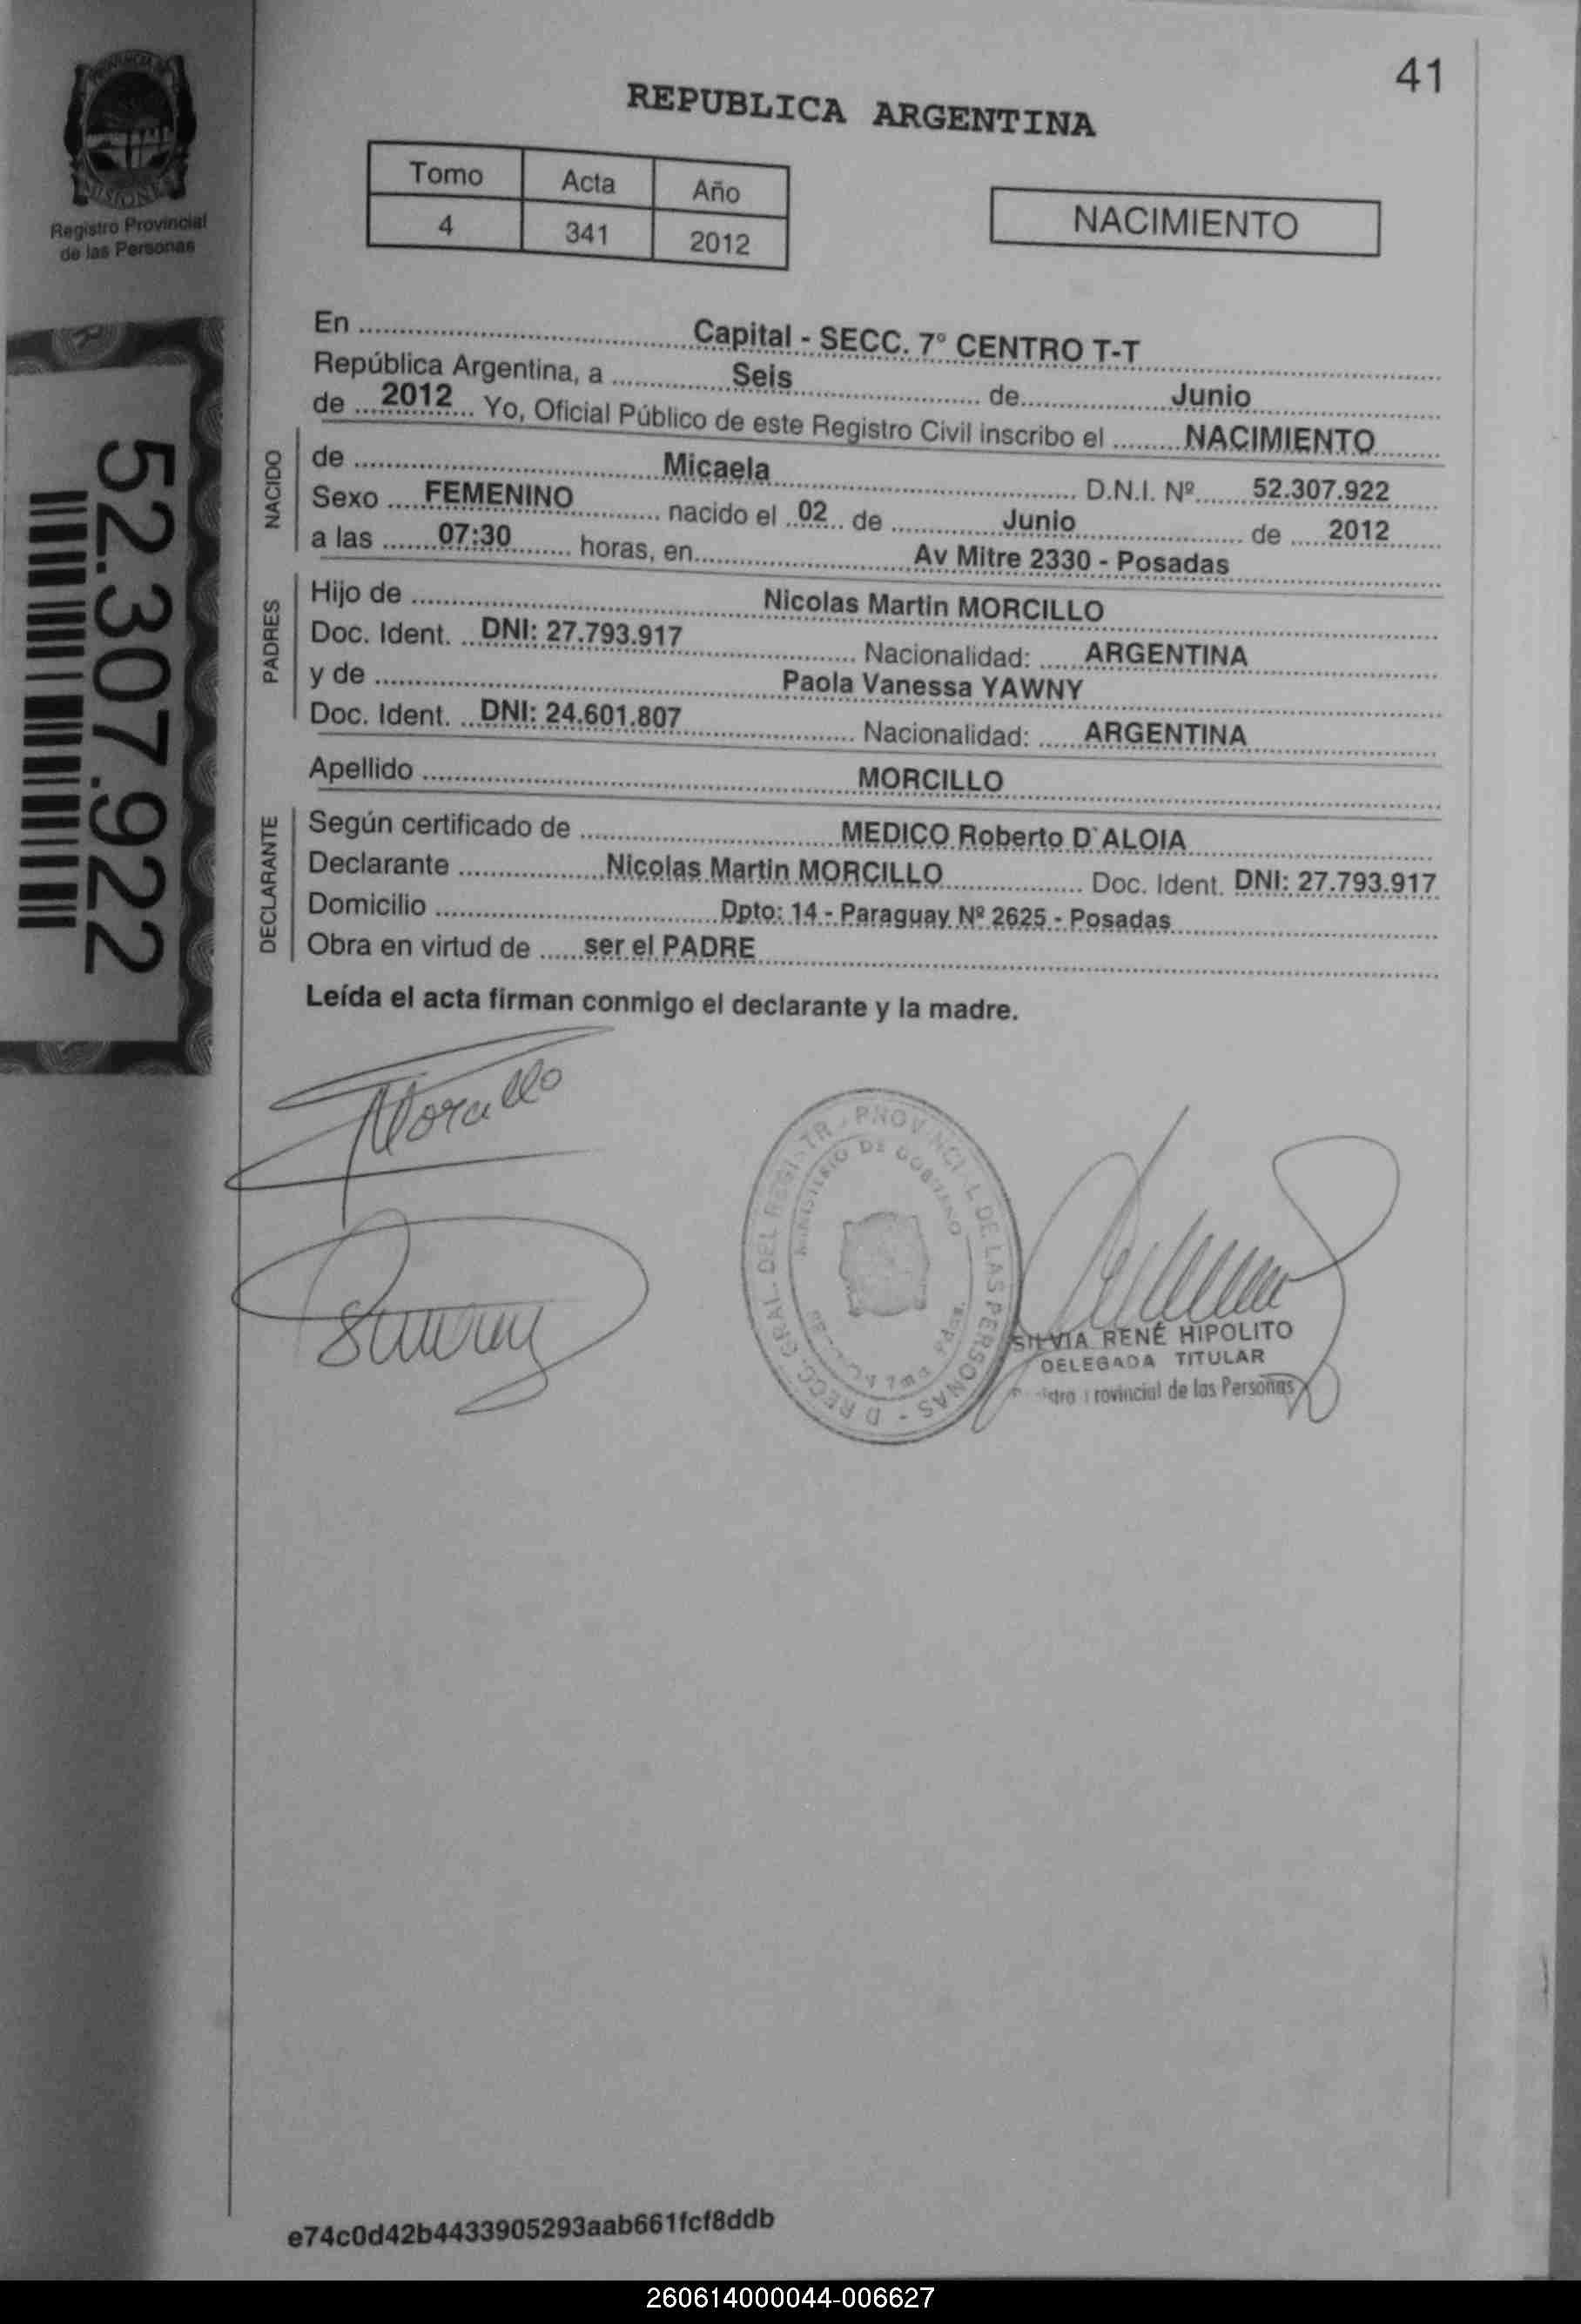 41
REPUBLICA ARGENTINA
PROVINCIA DE
MISIONES
Registro Provincial
de las Personas
Tomo Acta Año
4 341 2012
NACIMIENTO
52.307.922
En ........ Capital - SECC. 7º CENTRO T-T
República Argentina, a ........ Seis ........ de ........ Junio
de .... 2012 ... Yo, Oficial Público de este Registro Civil inscribo el ........ NACIMIENTO
NACIDO
de ........ Micaela ........ D.N.I. Nº ...... 52.307.922
Sexo .... FEMENINO ........ nacido el .. 02 .. de ........ Junio ........ de ..... 2012
a las ...... 07:30 ....... horas, en ........ Av Mitre 2330 - Posadas
PADRES
Hijo de ........ Nicolas Martin MORCILLO
Doc. Ident. .. DNI: 27.793.917 ........ Nacionalidad: ..... ARGENTINA
y de ........ Paola Vanessa YAWNY
Doc. Ident. .. DNI: 24.601.807 ........ Nacionalidad: ..... ARGENTINA
Apellido ........ MORCILLO
DECLARANTE
Según certificado de ........ MEDICO Roberto D`ALOIA
Declarante ........ Nicolas Martin MORCILLO ........ Doc. Ident. DNI: 27.793.917
Domicilio ........ Dpto: 14 - Paraguay Nº 2625 - Posadas
Obra en virtud de ..... ser el PADRE
Leída el acta firman conmigo el declarante y la madre.
Morcillo
PROVINCI L DE LAS PERSONAS
MINISTERIO DE GOBIERNO
SILVIA RENÉ HIPOLITO
DELEGADA TITULAR
rovincial de las Personas
e74c0d42b4433905293aab661fcf8ddb
260614000044-006627